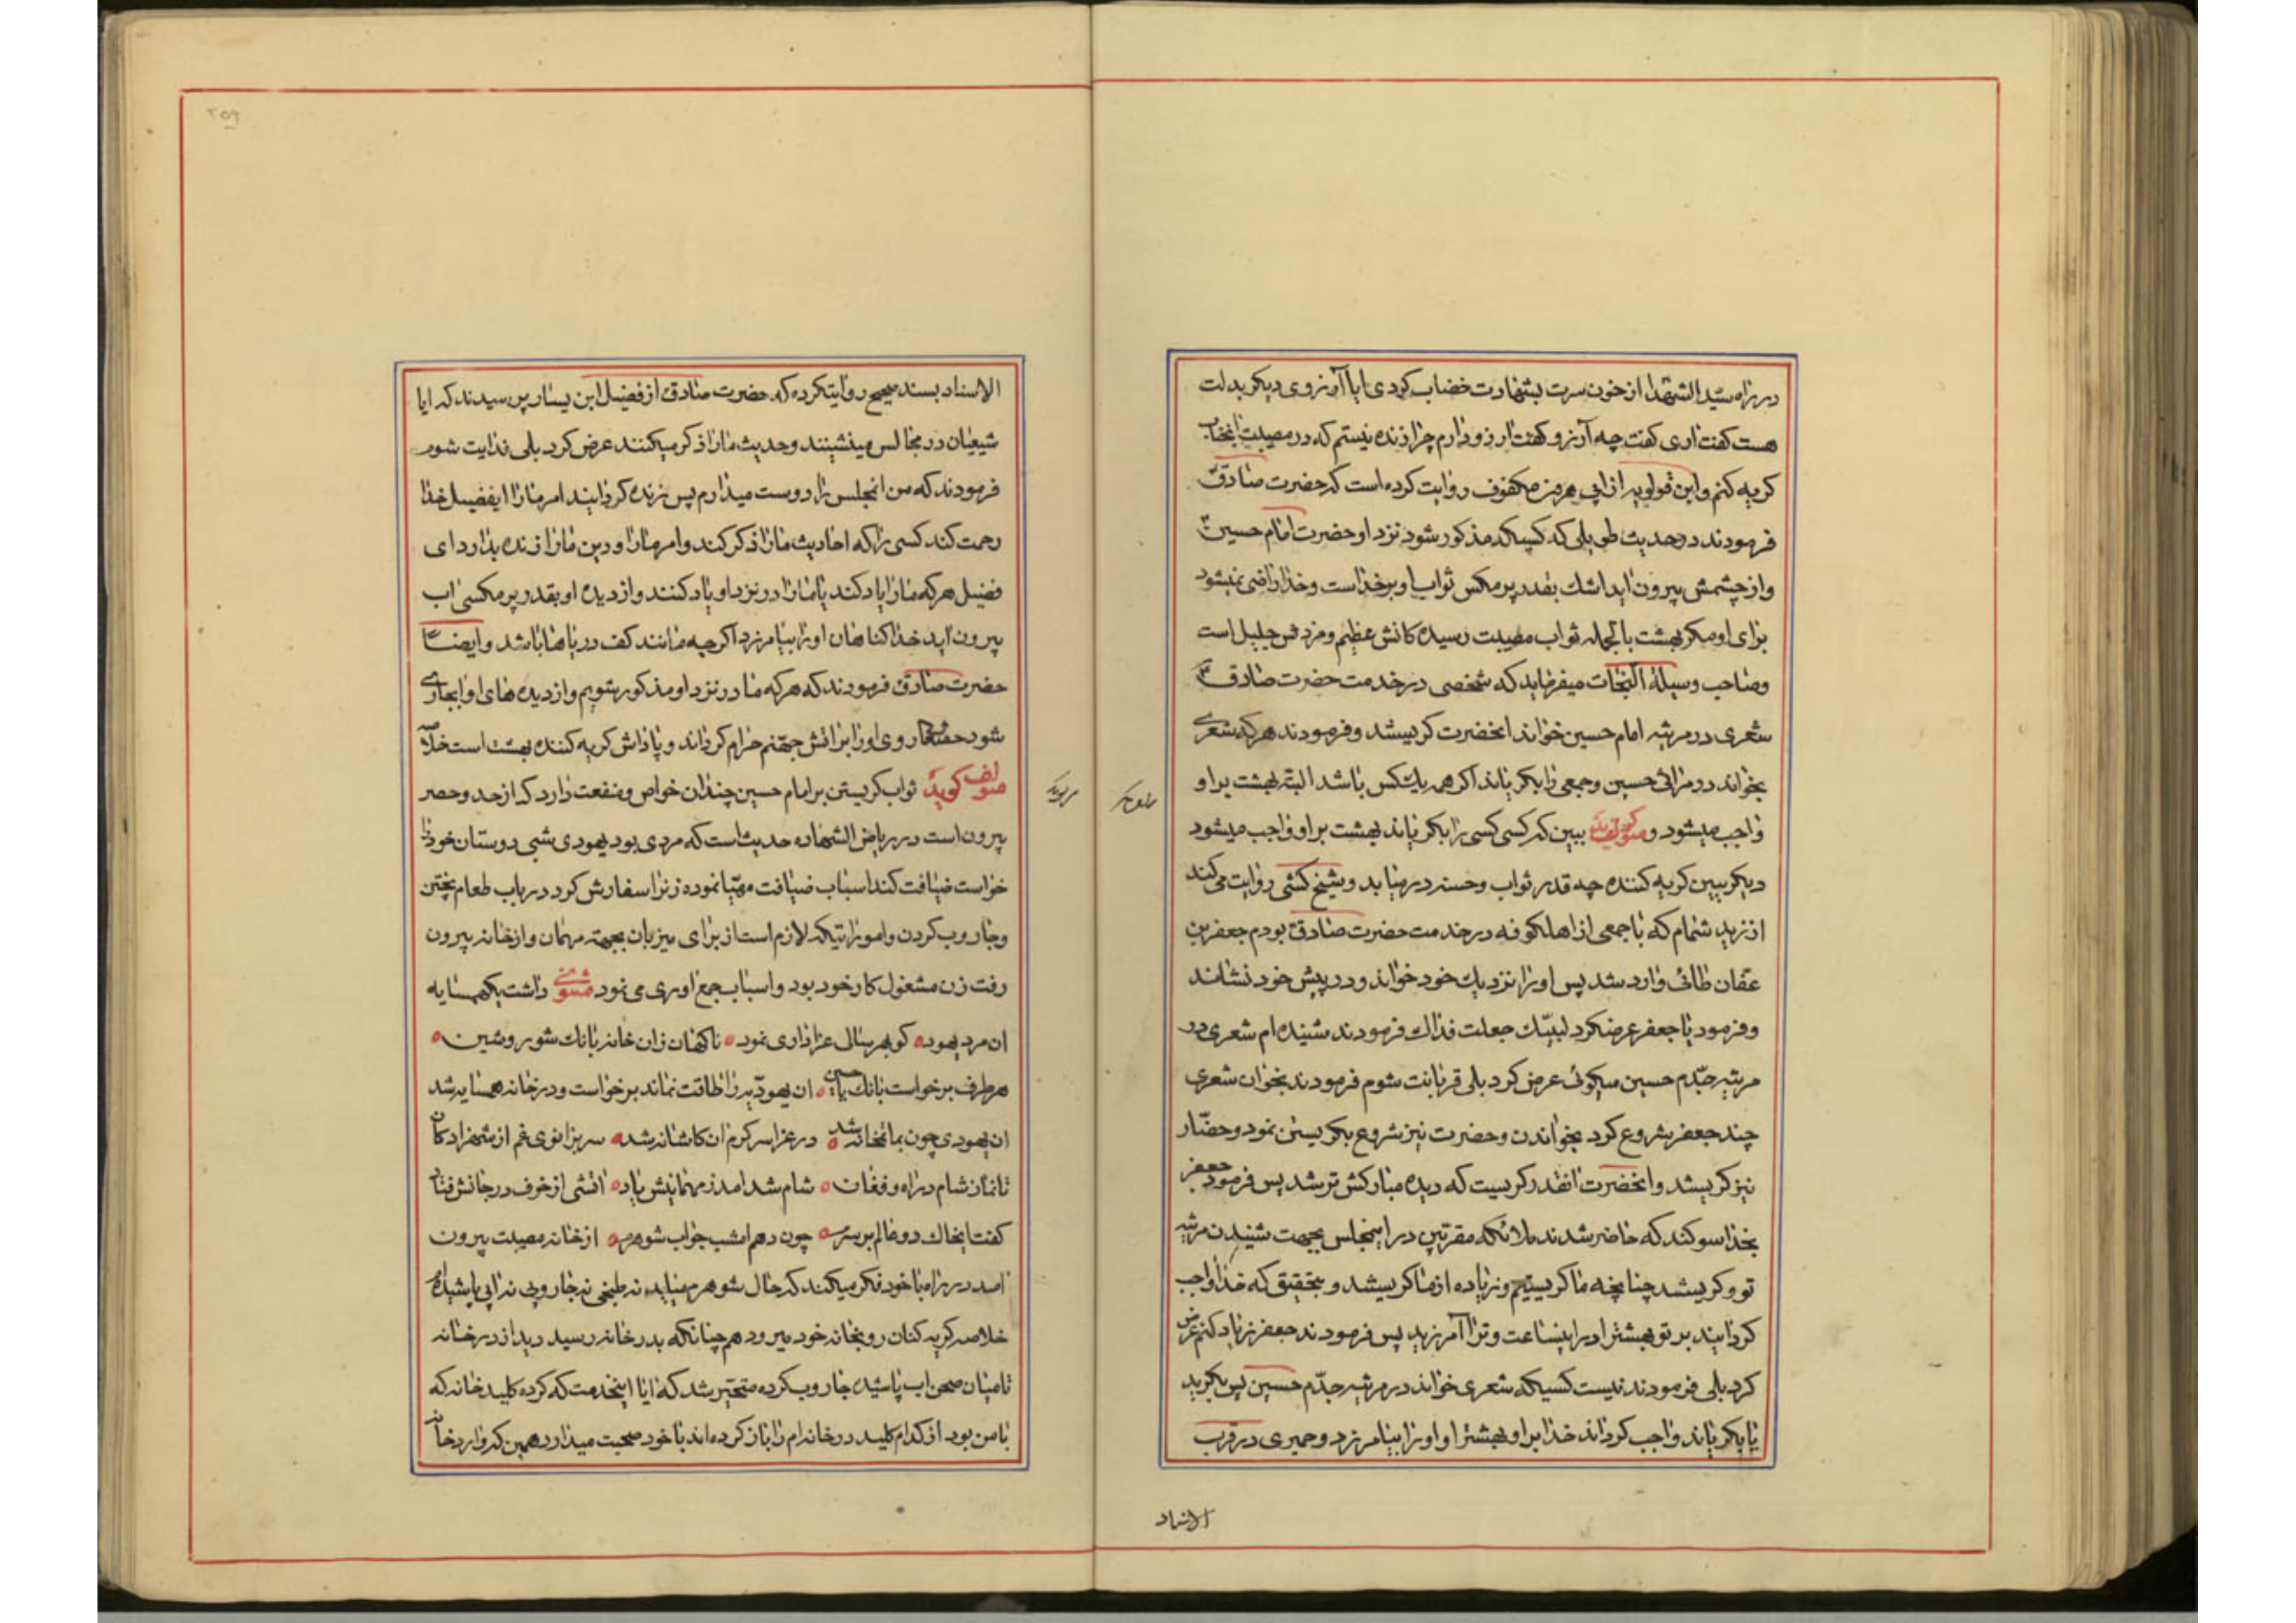 در راه سیّد الشهدا از خون سرت بشهادت خضاب کردی ایا آرزوی دیکر بدلت
هست کفت اری کفت چه آرزو کفت ارزو دارم چرا زنده نیستم که در مصیبت انجناب
کریه کنم و ابن قولویه از ابی هرون مکفوف روایت کرده است که حضرت صادق
فرمودند در حدیث طویلی که کسیکه مذکور شود نزد او حضرت امام حسین
و از چشمش بیرون اید اشك بقدر پر مکس ثواب او بر خداست و خدا راضی نمیشود
برای او مکر بهشت بالجمله ثواب مصیبت رسیده کانش عظیم و مزدش جلیل است
و صاحب وسیلة النجات میفرماید که شخصی در خدمت حضرت صادق
شعری در مرثیه امام حسین خواند انحضرت کریستند و فرمودند هر که شعری
بخواند در مراثی حسین و جمعی را بکریاند اکر همه یك کس باشد البته بهشت بر او
واجب میشود و ببین که کسی کسی را بکریاند بهشت بر او واجب میشود
دیکر ببین کریه کننده چه قدر ثواب و حسنه در میابد و شیخ کشی روایت می کند
از زید شحام که با جمعی از اهل کوفه در خدمت حضرت صادق بودم جعفر بن
عفان طائی وارد شد پس او را نزدیك خود خواند و در پیش خود نشاند
و فرمود یا جعفر عرضکرد لبیّك جعلت فداك فرمودند شنیده ام شعری در
مرثیه جدّم حسین میکوئی عرض کرد بلی قربانت شوم فرمودند بخوان شعری
چند جعفر شروع کرد بخواندن و حضرت نیز شروع بکریستن نمود و حضّار
نیز کریستند و انحضرت انقدر کریست که دیده مبارکش تر شد پس فرمود جعفر
بخدا سوکند که حاضر شدند ملائکه مقربین در اینمجلس بجهت شنیدن مرثیه
تو و کریستند چنانچه ما کریستیم و زیاده از ما کریستند و بتحقیق که خدا واجب
کردانید بر تو بهشترا در اینساعت و ترا آمرزید پس فرمودند جعفر زیاد کنم عرض
کرد بلی فرمودند نیست کسیکه شعری خواند در مرثیه جدّم حسین پس بکرید
یا بکریاند واجب کرداند خدا بر او بهشترا و او را بیامرزد و حمیری در قرب
الاسناد
الاسناد بسند صحیح روایتکرده که حضرت صادق از فضیل ابن یسار پرسیدند که ایا
شیعیان در مجالس مینشینند و حدیث مارا ذکر میکنند عرض کرد بلی فدایت شوم
فرمودند که من انمجلس را دوست میدارم پس زنده کردانید امر مارا ایفضیل خدا
رحمت کند کسی را که احادیث مارا ذکر کند و امر مارا و دین مارا زنده بدارد ای
فضیل هر که مارا یاد کند یا مارا در نزد او یاد کنند و از دیده او بقدر پر مکسی اب
بیرون آید خدا کناهان او را بیامرزد اکر چه مانند کف دریاها باشد و ایضا
حضرت صادق فرمودند که هر که ما در نزد او مذکور شویم و از دیده های او اب جاری
شود حقتعالی روی او را بر اتش جهنم حرام کرداند و پاداش کریه کننده بهشت است خلاصه
مولف کوید ثواب کریستن بر امام حسین چندان خواص و منفعت دارد که از حد و حصر
بیرون است در ریاض الشهاده حدیث است که مردی بود یهودی شبی دوستان خود را
خواست ضیافت کند اسباب ضیافت مهیّا نموده زنرا سفارش کرد در باب طعام پختن
و جاروب کردن و اموراتیکه لازم است از برای میزبان بجهته مهمان و از خانه بیرون
رفت زن مشغول کار خود بود و اسباب جمع اوری می نمود مثنوی داشت یکهمسایه
ان مرد یهود ه کو بهر سال عزاداری نمود ه ناکهان زان خانه بانك شور و شین ه
هر طرف برخواست بانك یا حسین ه ان یهودیّه را طاقت نماند برخواست و در خانه همسایه شد
ان یهودی چون بمانخانه شد ه در عزا سر کرم ان کاشانه شد ه سر بزانوی غم از شهزادکان
تا نماز شام در اه و فغان ه شام شد امد ز مهمانیش یاد ه اتشی از خوف در جانش فتاد
کفت ایخاك دو عالم بر سرم ه چون دهم امشب جواب شوهرم ه از خانه مصیبت بیرون
امد در راه با خود فکر میکند که حال شوهر میاید نه طبخی نه جاروبی نه ابی پاشیده
خلاصه کریه کنان رو بخانه خود میرود همچنانکه بدر خانه رسید دید از در خانه
تا میان صحن اب پاشیده جاروب کرده متحیّر شد که ایا اینخدمت که کرده کلید خانه که
با من بود از کدام کلید در خانه ام را باز کرده اند با خود صحبت میدارد همین که وارد خانه
۲۵۹